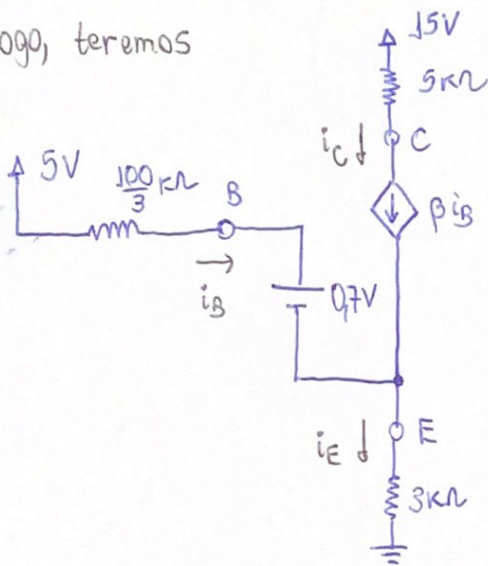 ogo, teremos
15V
5KΩ
iC↓ C
5V
100/3 KΩ B
βiB
→
iB
0,7V
iE↓ E
3KΩ